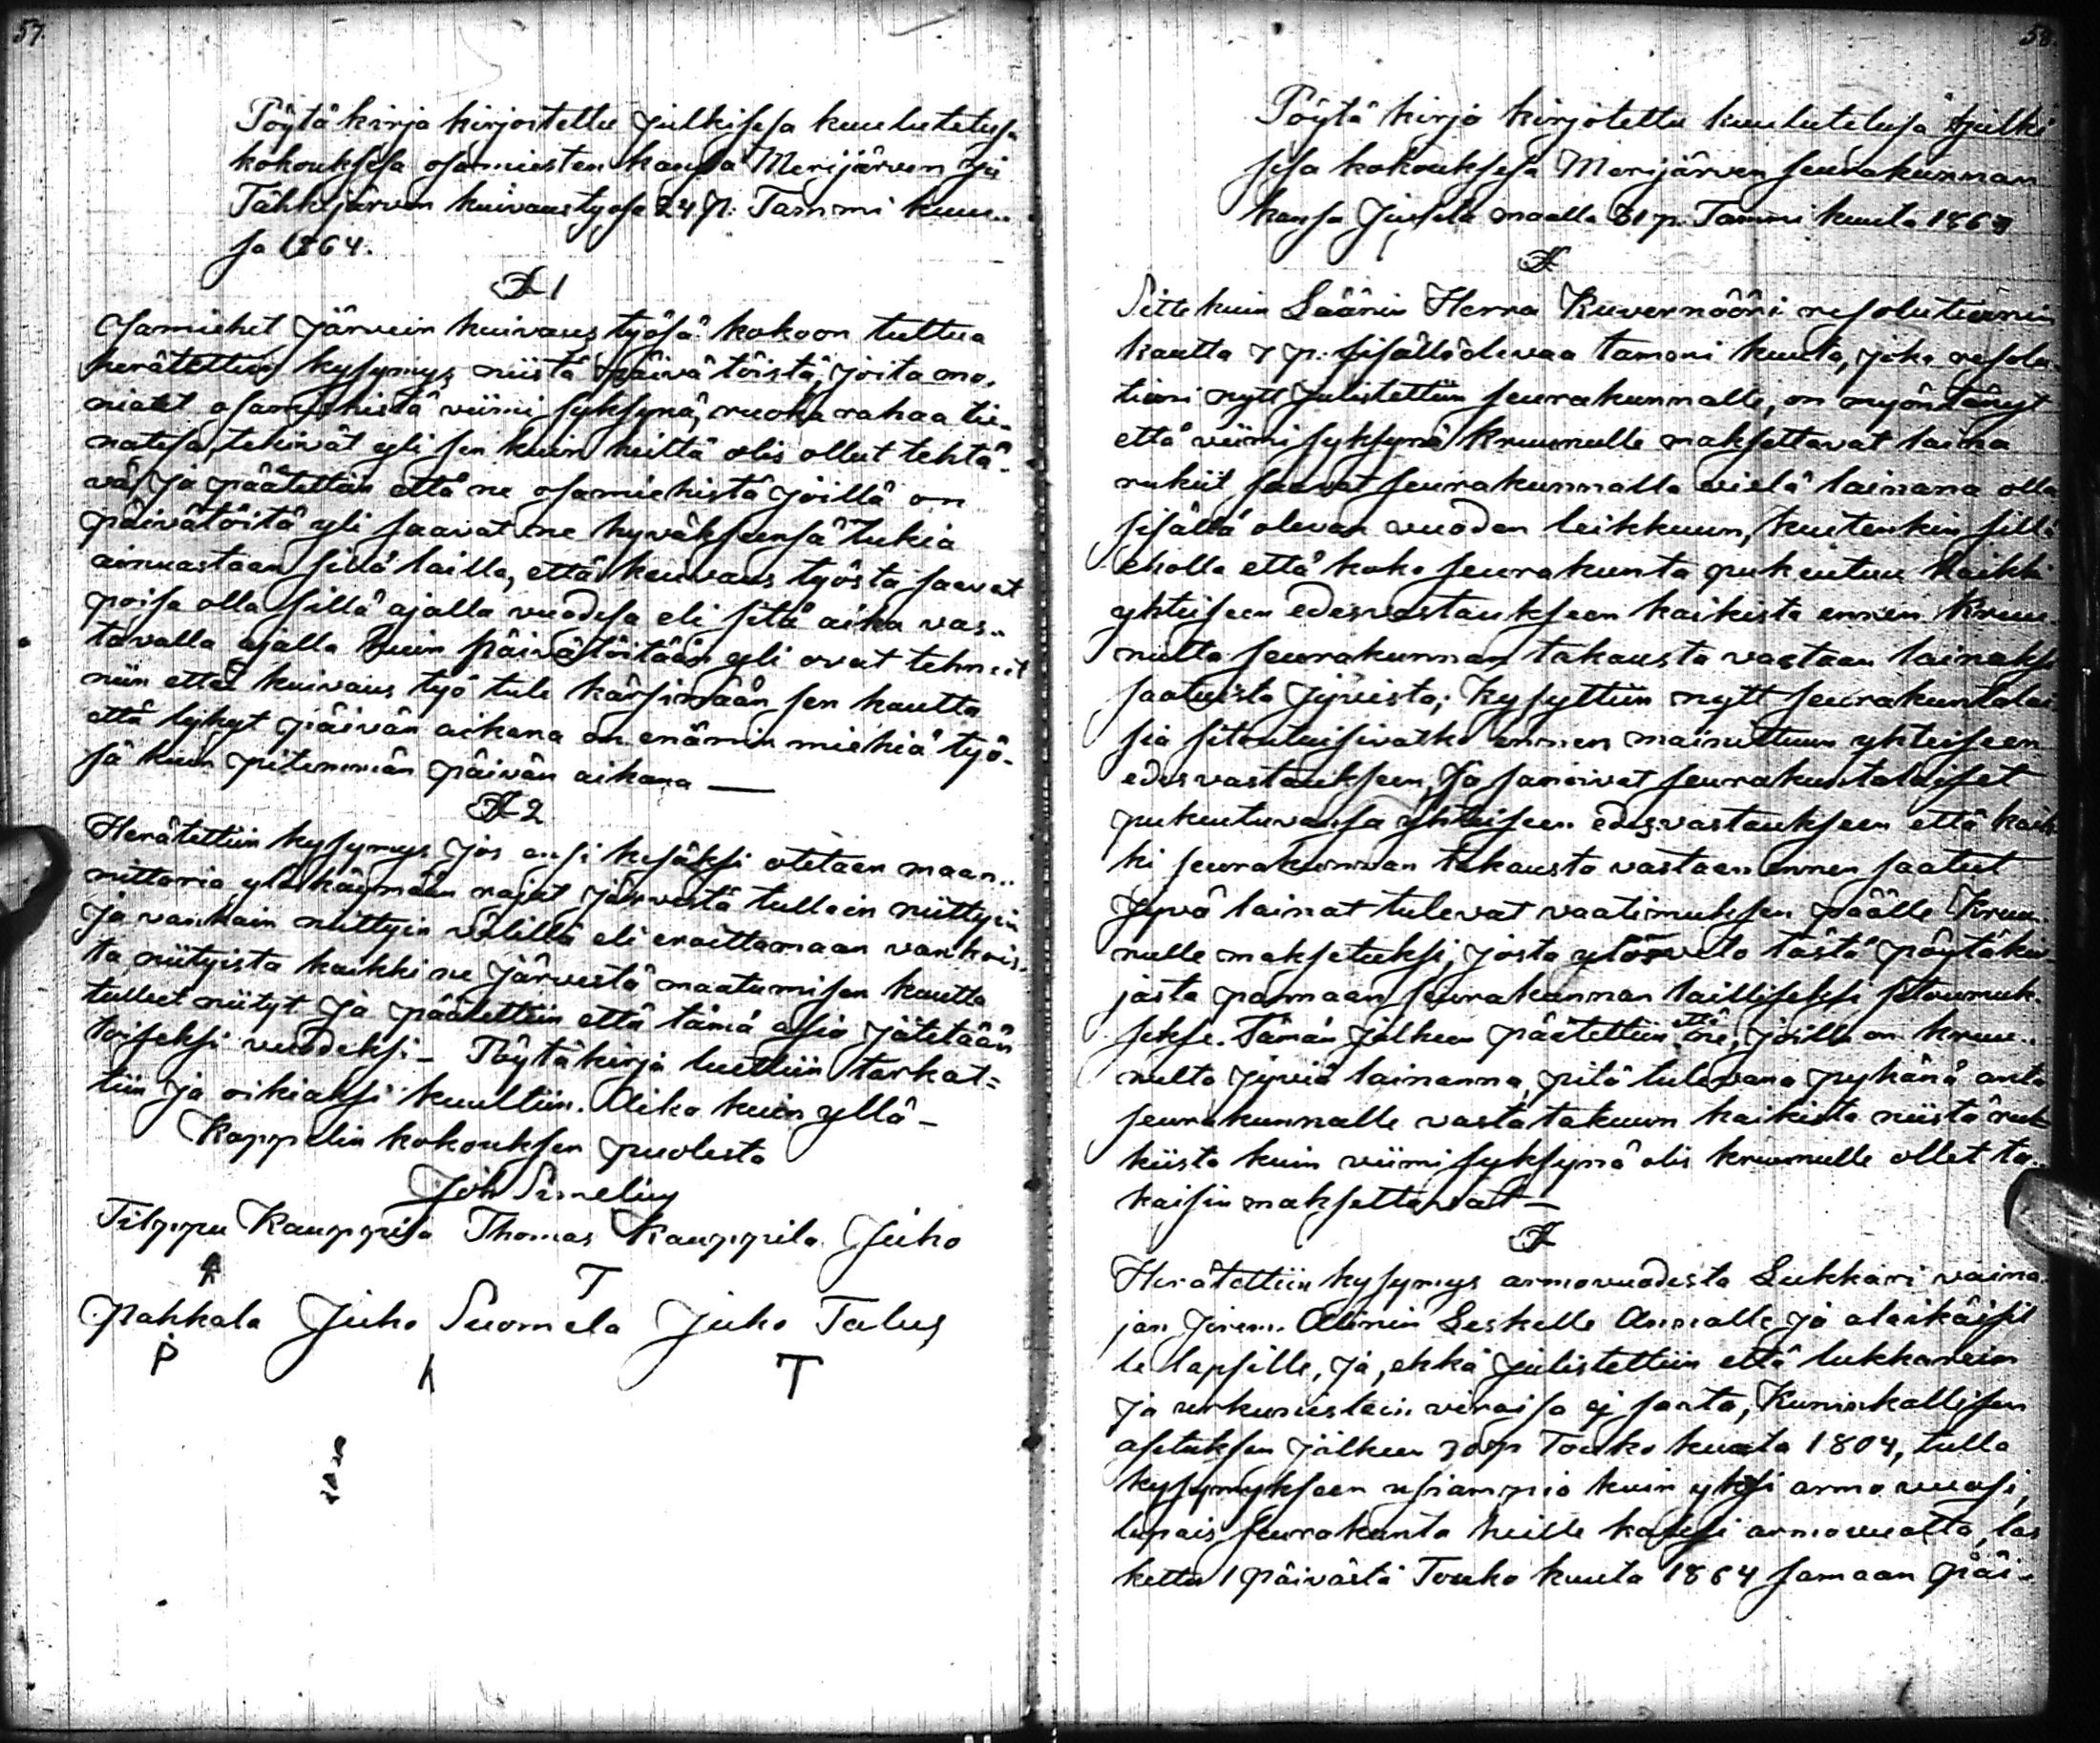 57.
Pöytä kirja kirjoitettu Julkisesa kuulutetusa
kokouksesa osamiesten kansa Merijärven ja
Tähkjärven kuivaustyösä 24 p. Tammi kuu..
sa 1864.
§ 1
Osamiehet Järvein kuivaus työsä kokoon tultua
herätettiin kysymys niistä päivätöistä, joita mo.
niat osamiehistä viimi syksynä, ruoka rahaa tie.
natesa, tekivät yli sen kuin heiltä olis ollut tehtä.
vä, ja päätettiin että ne osamiehistä joillä on
päivätöitä yli saavat ne hyväksensä lukia
ainuastaan sillä lailla, että kuivaus työstä saavat
poisa olla sillä ajalla vuodesa eli sitä aika vas..
tavalla ajalla kuin päivätöitään yli ovat tehneet
niin ettei kuivaus työ tule kärsimään sen kautta
että lyhyt päivän aikana on enämin miehiä työ-
sä kuin pitemmän päivän aikana —
§ 2
Herätettiin kysymys jos ensi kesäksi otetaan maan..
mittaria ylöskäymään rajat järvestä tullein niittyin
ja vanhain niittyin välillä eli eroittamaan vanhois.
ta niityistä kaikki ne Järvestä maatumisen kautta
tulleet niityt ja päätettiin että tämä asia jätetään
toiseksi vuodeksi – Pöytäkirja luettiin tarkat=
tiin ja oikiaksi kuultiin. Aika kuin yllä –
Kappelin kokouksen puolesta
Joh Simelius
Filppu Kauppila Thomas Kauppila Juho
T
Pahkala Juho Suomela Juho Talus
P T
58.
Pöytä kirja kirjotettu kuulutetusa Julki
sesa kokouksesa Merijärven seurakunnan
kansa Juusola maalla 31 p. Tammi kuuta 1864
§
Sitte kuin Läänin Herra Kuvernööri resolutionin
kautta 7 p. sisällä olevaa tammi kuuta, joka resolu.
tioni nytt Julistettiin seurakunnalle, on myöntänyt
että viimi syksynä kruunulle maksettavat laina
rukiit saavat seurakunnalla vielä lainana olla
sisällä olevan vuoden leikkuun, kuitenkin sillä
eholla että koko seurakunta pukeutuu kaikki
yhteiseen edesvastaukseen kaikista ennen kruu
nulta seurakunnan takausta vastaan lainaksi
saatuista jyvistä; Kysyttiin nytt seurakuntalai
sia sitoutuisivatko ennen mainittuun yhteiseen
edesvastaukseen, Ja sanoivat seurakuntalaiset
pukeutuvansa yhteiseen edesvastaukseen että kaik
ki seurakunnan takausta vastaan ennen saatut
jyvä lainat tulevat vaatimuksen päälle kruu..
nulle maksetuksi, josta ulosveto tästä pöytäkir
jasta pannaan seurakunnan laillisesksi sitoumuk.
sekse. Tämän jälkeen päätettiin että ne, joilla on kruu..
nulta jyviä lainanna, pitä tulevana pyhänä anta
seurakunnalle vasta takuun kaikista niistä ruk
kiista kuin viimi syksynä olis kruunulle ollet ta..
kaisin maksettavat –
§
Herätettiin kysymys armovuodesta Lukkari vaina
jan Jerem. Alinin Leskelle Annalle ja alaikäisil
le lapsille, ja, ehkä julistettiin että lukkarein
ja urkunistein viraisa ej santa, Kuninkallisen
asetuksen jälkeen 30 p Touko kuuta 1804, tulla
kysymykseen usiampia kuin yksi armo vuosi,
lupais seurakunta heille kaksi armovuotta, las
kettu 1 päivästä Touko kuuta 1864 samaan päi..